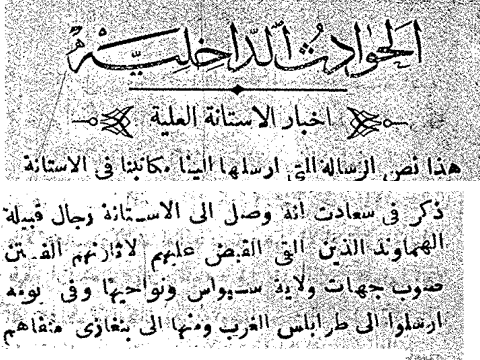 الحوادث الداخلية
اخبار الاستانة العلية
هذا نص الرسالة التى ارسلها الينا مكاتبنا فى الاستانة
ذكر فى سعادت انه وصل الى الاستانة رجال قبيلة
الهماوند الذين التى القبض عليهم لاثارتهم الفتن
صوب جهات ولاية سيواس ونواحيها وفى يومه
ارسلوا الى طرابلس الغرب ومنها الى بنغازى منفاهم